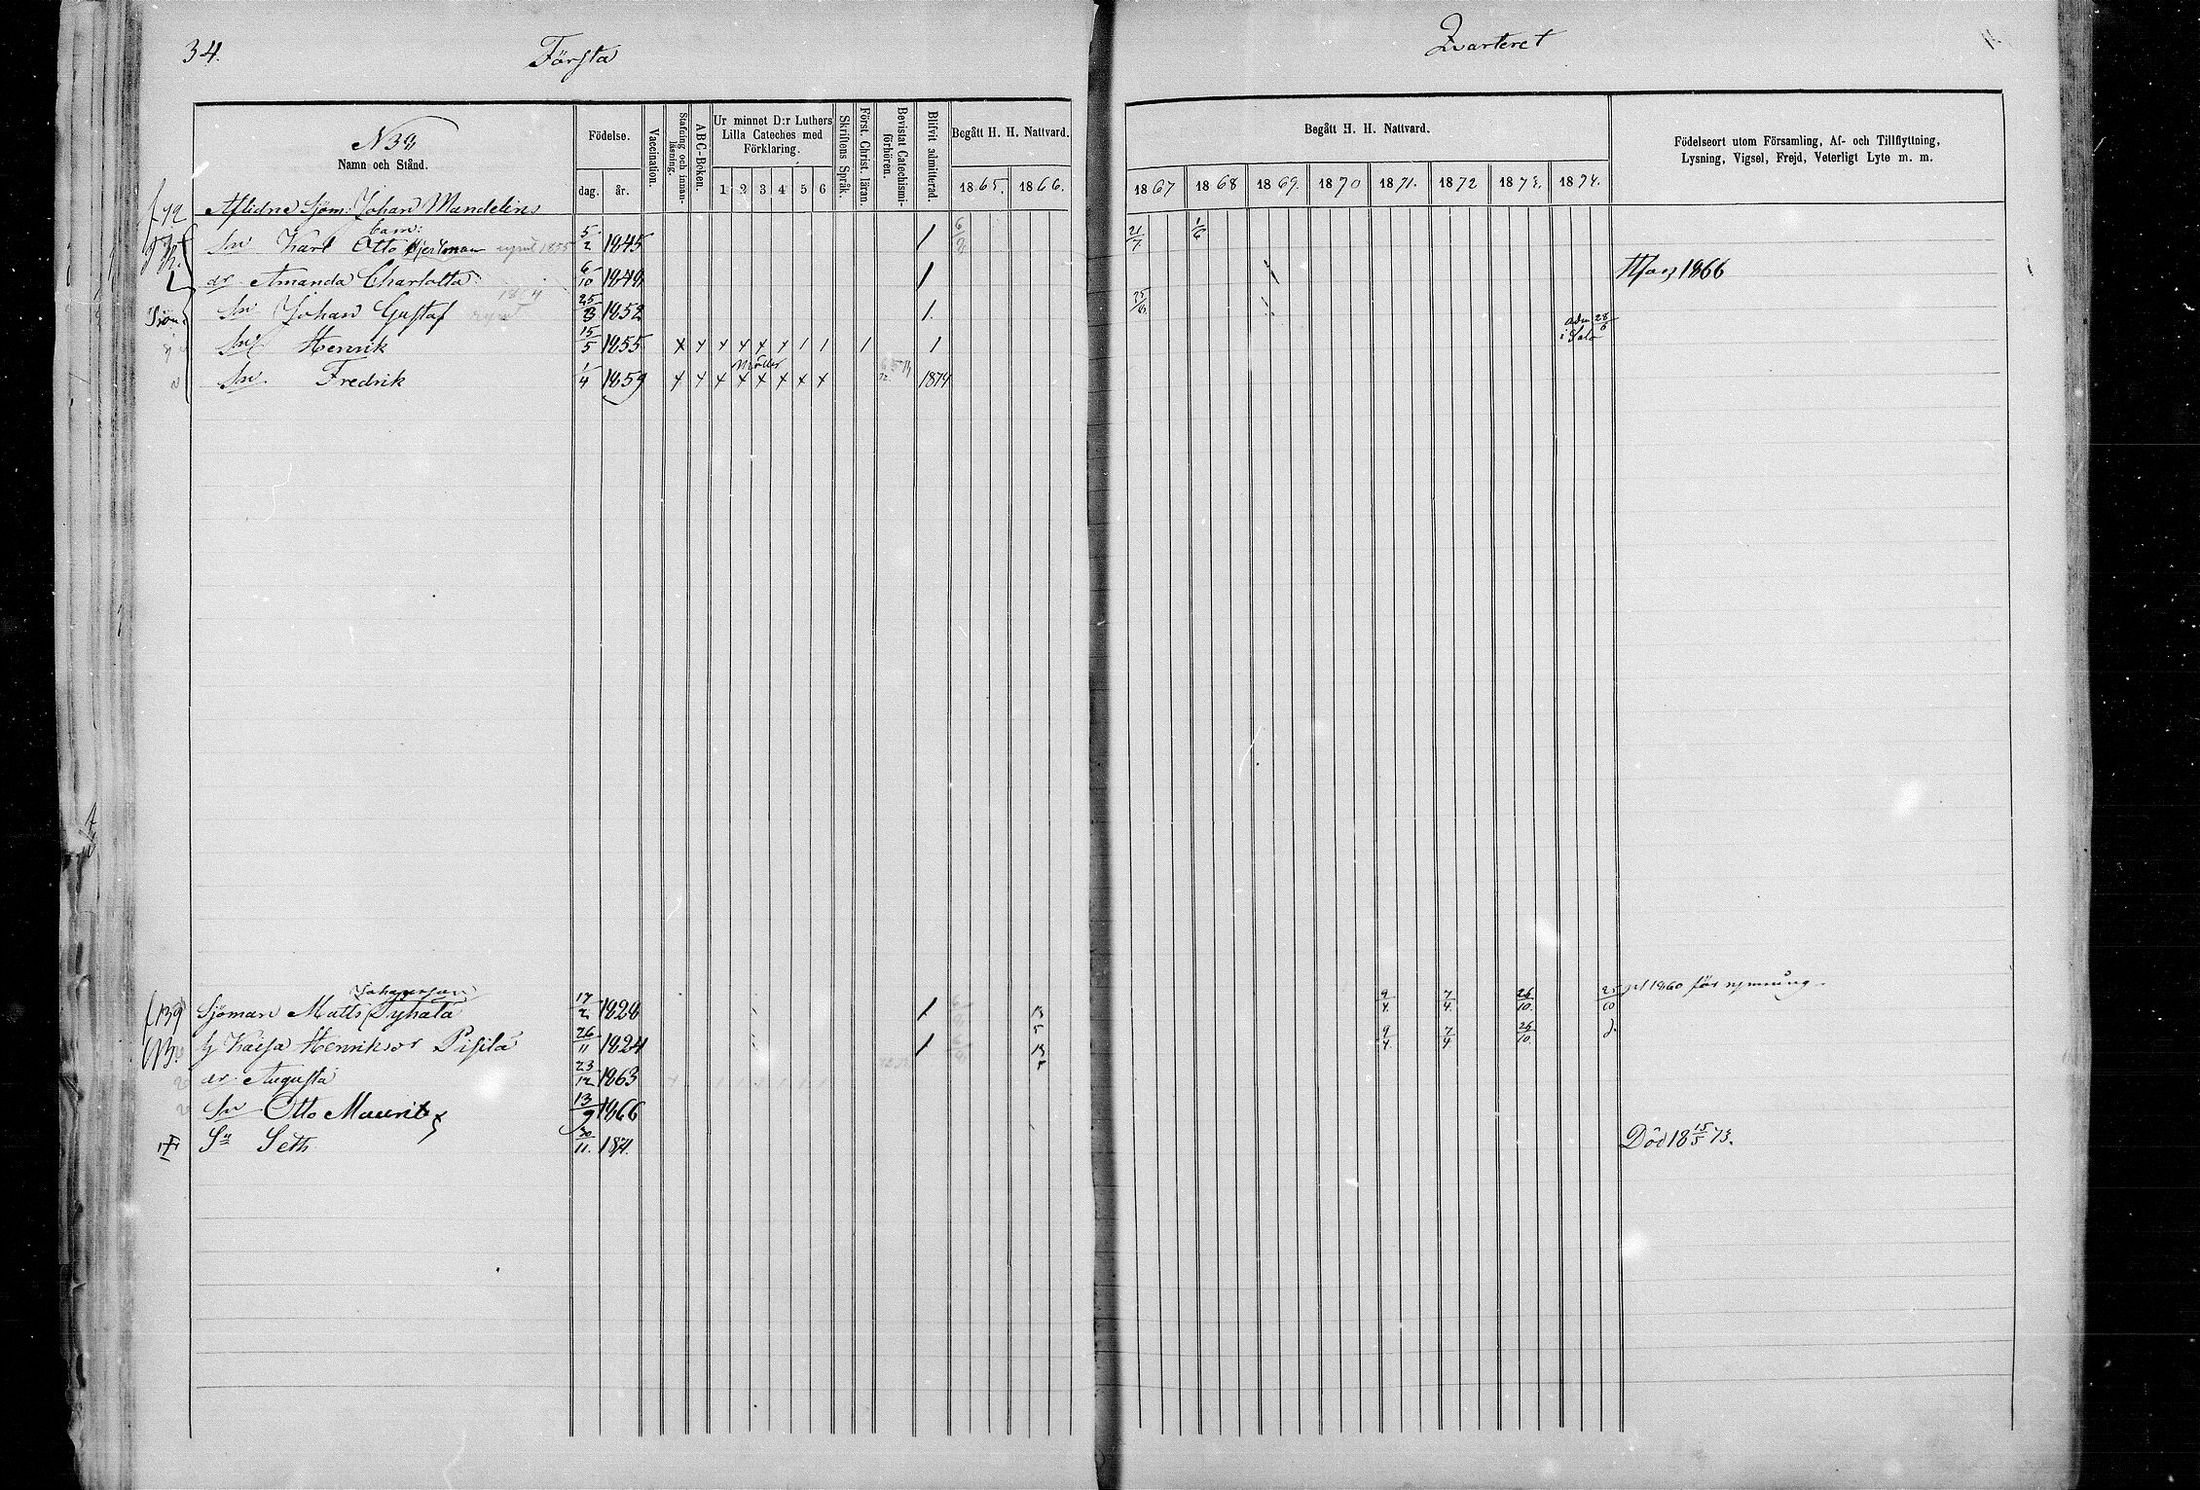 34.
Första
Qvarteret
N 38
Namn och Stånd.
Födelse.
dag.
år.
Vaccination.
Stafning och innan-läsning.
ABC-Boken.
Ur minnet D:r Luthers
Lilla Cateches med
Förklaring.
1 2 3 4 5 6
Skriftens Språk.
Först. Christ. läran.
Bevistat Catechismi-förhören.
Blifvit admitterad.
Begått H. H. Nattvard.
1865. 1866.
Begått H. H. Nattvard.
1867 1868 1869. 1870 1871. 1872 1873. 1874.
Födelseort utom Församling, Af- och Tillflyttning,
Lysning, Vigsel, Frejd, Veterligt Lyte m. m.
Aflidne Sjöm: Johan Mandelins
barn:
Sn Karl Otto 5/2 1845 / 6/8 21/7 1/6
dr Amanda Charlotta 6/10 1848 / 1866
Sn Johan Gustaf 25/3 1852 1.
Sn Henrik 15/5 1855 x x x x x x 1 1 1 1 adm 28/6
Sn. Fredrik 1/4 1859 x x x x x x x x 1874
Johansson
Sjöman Matts Pyhälä 17/2 1828 / 13/5 9/4. 7/4. 26/10. 25/10 1860 för rymning.
h Kaisa Henriksdr Pispilä 26/11 1824 / 13/5 9/4. 7/4 26/10. d:
dr Augusta 23/12 1863
Sn Otto Mauritz 13/9 1866
Sn Seth 30/11. 1871. Död 18 15/5 73.